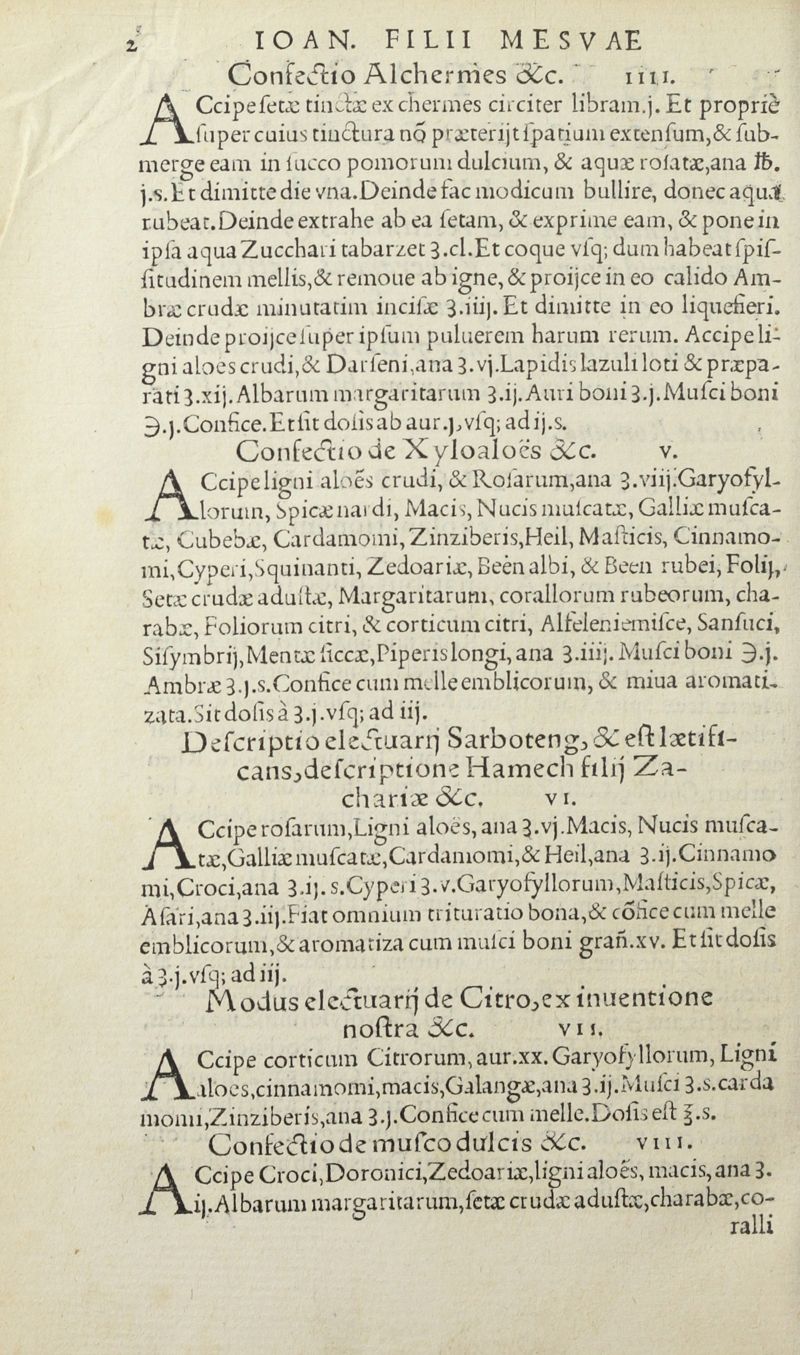 2 IOAN. FILII MESVAE
Confectio Alchermes &c. IIII.
ACcipe setæ tinctæ ex chermes circiter libram.j. Et propriè
super cuius tinctura nõ præterijt spatium extensum,& sub-
merge eam in succo pomorum dulcium, & aquæ rosatæ,ana ℔.
j.s.Et dimitte die vna.Deinde fac modicum bullire, donec aqua
rubeat.Deinde extrahe ab ea setam, & exprime eam, & pone in
ipsa aqua Zucchari tabarzet ʒ.cl.Et coque vsq; dum habeat spis-
situdinem mellis,& remoue ab igne,& proijce in eo calido Am-
bræ crudæ minutatim incisæ ʒ.iiij. Et dimitte in eo liquefieri.
Deinde proijce super ipsum puluerem harum rerum. Accipe li-
gni aloes crudi,& Darseni,ana ʒ.vj.Lapidis lazuli loti & præpa-
rati ʒ.xij. Albarum margaritarum ʒ.ij.Auri boni ʒ.j.Musci boni
℈.j.Confice.Et sit dosis ab aur.j,vsq; ad ij.s.
Confectio de Xyloaloës &c. V.
ACcipe ligni aloës crudi, & Rosarum,ana ʒ.viij.Garyofyl-
lorum, Spicæ nardi, Macis, Nucis muscatæ, Galliæ musca-
tæ, Cubebæ, Cardamomi, Zinziberis,Heil, Masticis, Cinnamo-
mi,Cyperi,Squinanti, Zedoariæ, Beën albi, & Been rubei, Folij,
Setæ crudæ adustæ, Margaritarum, corallorum rubeorum, cha-
rabæ, Foliorum citri, & corticum citri, Alfeleniemisce, Sansuci,
Sisymbrij,Mentæ siccæ,Piperis longi, ana ʒ.iiij. Musci boni ℈.j.
Ambræ ʒ.j.s.Confice cum melle emblicorum, & miua aromati-
zata.Sit dosis à ʒ.j.vsq; ad iij.
Descriptio electuarij Sarboteng, & est lætifi-
cans,descriptione Hamech filij Za-
chariæ &c. VI.
ACcipe rosarum,Ligni aloës, ana ʒ.vj.Macis, Nucis musca-
tæ,Galliæ muscatæ,Cardamomi,& Heil,ana ʒ.ij.Cinnamo
mi,Croci,ana ʒ.ij. s.Cyperi ʒ.v.Garyofyllorum,Masticis,Spicæ,
Asari,ana ʒ.iij.Fiat omnium trituratio bona,& cõfice cum melle
emblicorum,& aromatiza cum musci boni gran̄.xv. Et sit dosis
à ʒ.j.vsq; ad iij.
Modus electuarij de Citro,ex inuentione
nostra &c. VII.
ACcipe corticum Citrorum, aur.xx. Garyofyllorum, Ligni
aloes,cinnamomi,macis,Galangæ,ana ʒ.ij.Musci ʒ.s.carda
momi,Zinziberis,ana ʒ.j.Confice cum melle.Dosis est ℥.s.
Confectio de musco dulcis &c. VIII.
ACcipe Croci,Doronici,Zedoariæ,ligni aloës, macis, ana ʒ.
ij.Albarum margaritarum,setæ crudæ adustæ,charabæ,co-
ralli